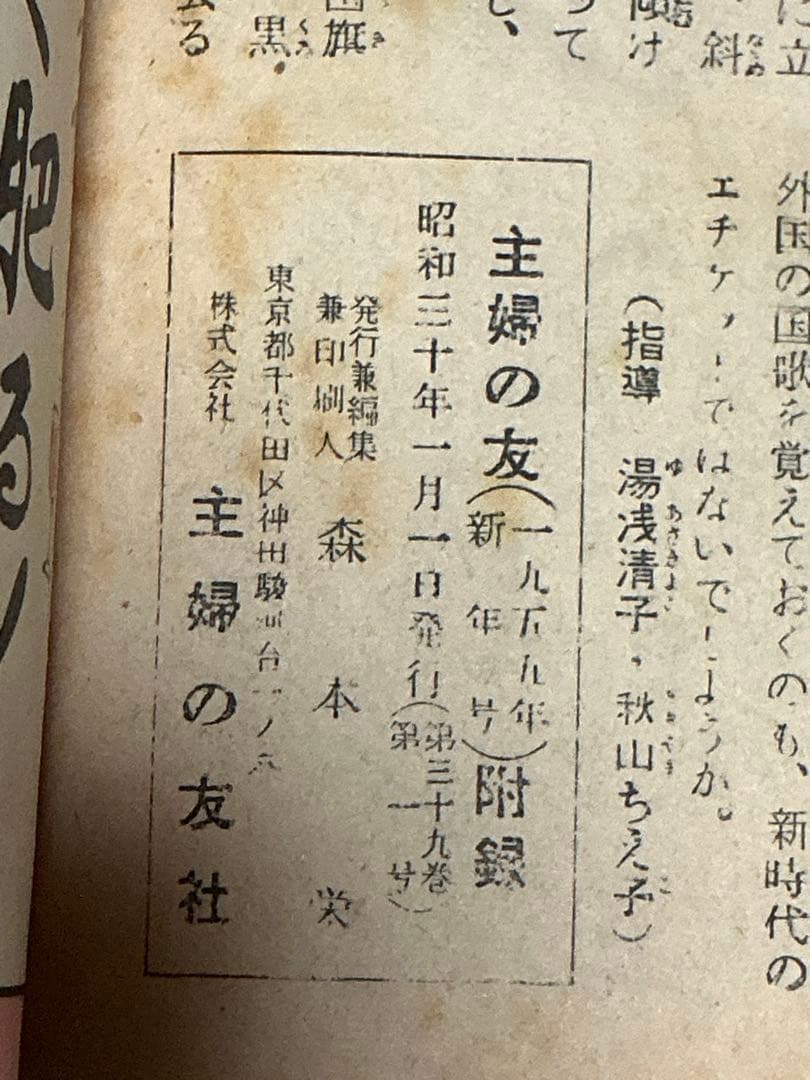 は立
斜
傾け
って
し、
国旗
黒
る
外国の国歌を覚えておくのも、新時代の
エチケットではないでしょうか。
(指導 湯浅清子・秋山ちえ子)
主婦の友(一九五五年新年号)附録
昭和三十年一月一日発行(第三十九巻第一号)
発行兼編集
兼印刷人 森本栄
東京都千代田区神田駿河台
株式会社 主婦の友社
肥る